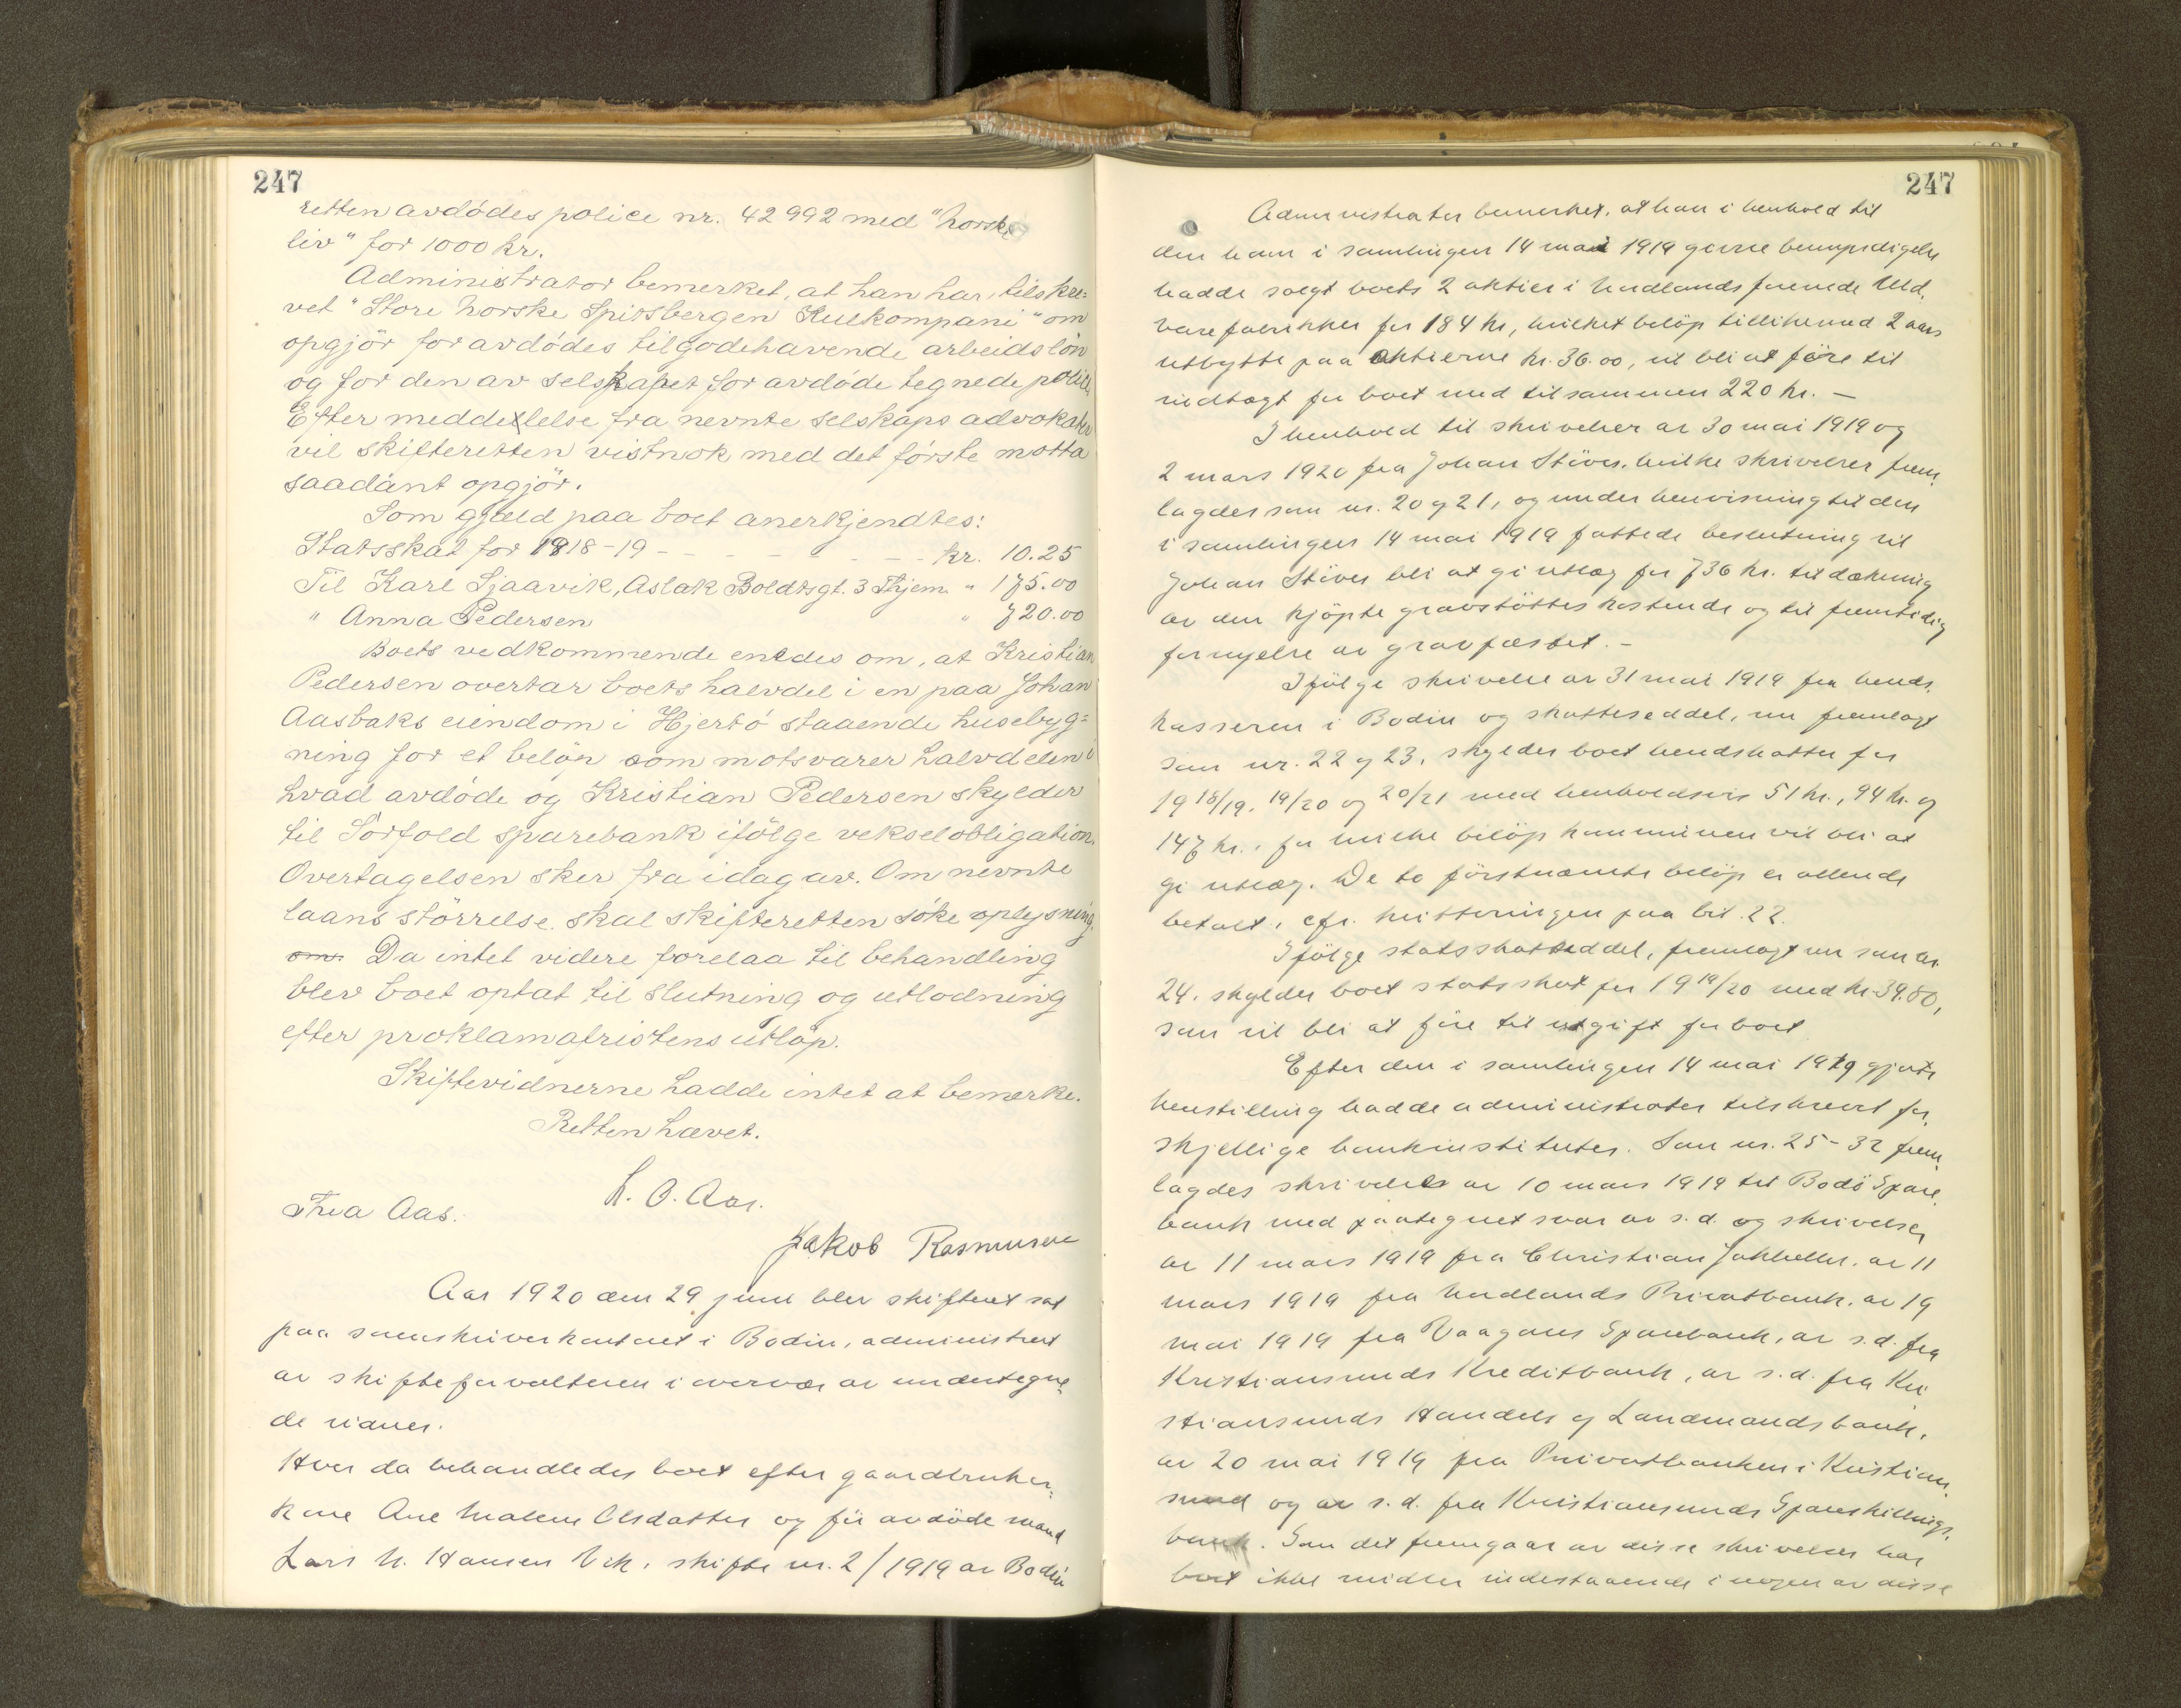 247
retten avdödes police nr. 42992 med "Norske
liv" for 1000 kr.
Administrator bemerket, at han har tilskre=
vet "Store Norske Spitsbergen Kulkompani" om
opgjör for avdödes tilgodehavende arbeidslön
og for den av selskapet for avdöde tegnede police
Efter meddelelse fra nevnte selskaps advokater
vil skifteretten vistnok med det förste motta
saadant opgjör.
Som gjæld paa boet anerkjendtes:
Statsskat for 1918-19 - - - - - - - kr. 10.25
Til Karl Sjaavik, Aslak Boldtsgt. 3 Thjem. " 175.00
" Anna Pedersen " 720.00
Boets vedkommende enedes om, at Kristian
Pedersen overtar boets halvdel i en paa Johan
Aasbaks eiendom i Hjertö staaende husebyg=
ning for et belöp som motsvarer halvdelen
hvad avdöde og Kristian Pedersen skylder
til Sörfold sparebank ifölge vekselobligation.
Overtagelsen sker fra idag av. Om nevnte
laans störrelse skal skifteretten söke oplysning.
om. Da intet videre forelaa til behandling
blev boet optat til slutning og utlodning
efter proklamafristens utlöp.
Skiftevidnerne hadde intet at bemerke.
Retten hævet.
L. O. Aas.
Thea Aas.
Jakob Rasmussen
Aar 1920 den 29 juni blev skifteret sat
paa sorenskriverkontoret i Bodin, administrert
av skifteforvalteren i overvær av undertegne
de vidner.
Hvor da behandledes boet efter gaardbruker
kone Ane Malene Olsdatter og för avdöde mand
Lars N. Hansen Vik, skifte nr. 2/1919 av Bodin
247
Administrator bemerket, at han i henhold til
den ham i samlingen 14 mai 1919 givne bemyndigelse
hadde solgt boets 2 aktier i Nordlands forenede Uld.
varefabrikker for 184 kr, hvilket belöp tillikemed 2 aars
utbytte paa aktierne kr. 36.00, vil bli at före til
indtægt for boet med tilsammen 220 kr. —
I henhold til skrivelser av 30 mai 1919 og
2 mars 1920 fra Johan Stöver, hvilke skrivelser frem
lagdes som nr. 20 og 21, og under henvisning til den
i samlingen 14 mai 1919 fattede beslutning vil
Johan Stöver bli at gi utlæg for 736 kr. til dækning
av den kjöpte gravstöttes kostende og til fremtidig
fornyelse av gravfæstet. -
Ifölge skrivelse av 31 mai 1919 fra herreds.
kasseren i Bodin og skatteseddel, nu fremlagt
som nr. 22 og 23, skylder boet herredsskatter for
1918/19, 19/20 og 20/21 med henholdsvis 51 kr., 94 kr. og
147 kr., for hvilke belöp kommunen vil bli at
gi utlæg. De to förstnævnte belöp er allerede
betalt, cfr. kvitteringen paa bil. 22.
Ifölge statsskatseddel, fremlagt nu som nr.
24, skylder boet statsskat for 1919/20 med kr. 39.80,
som vil bli at före til utgift for boet
Efter den i samlingen 14 mai 1919 gjorte
henstilling hadde administrator tilskrevet for
skjellige bankinstituter. Som nr. 25-32 frem
lagdes skrivelse av 10 mars 1919 til Bodö Spare
bank med paategnet svar av s.d. og skrivelser
av 11 mars 1919 fra Christian Jakhelln, av 11
mars 1919 fra Nordlands Privatbank, av 19
mai 1919 fra Vaagans Sparebank, av s.d. fra
Kristiansunds Kreditbank, av s.d. fra Kri
stiansunds Handels og Landmandsbank,
av 20 mai 1919 fra Privatbanken i Kristian
sund og av s.d. fra Kristiansunds Spareskillings.
bank. Som det fremgaar av disse skrivelser har
boet ikke midler indestaaende i nogen av disse